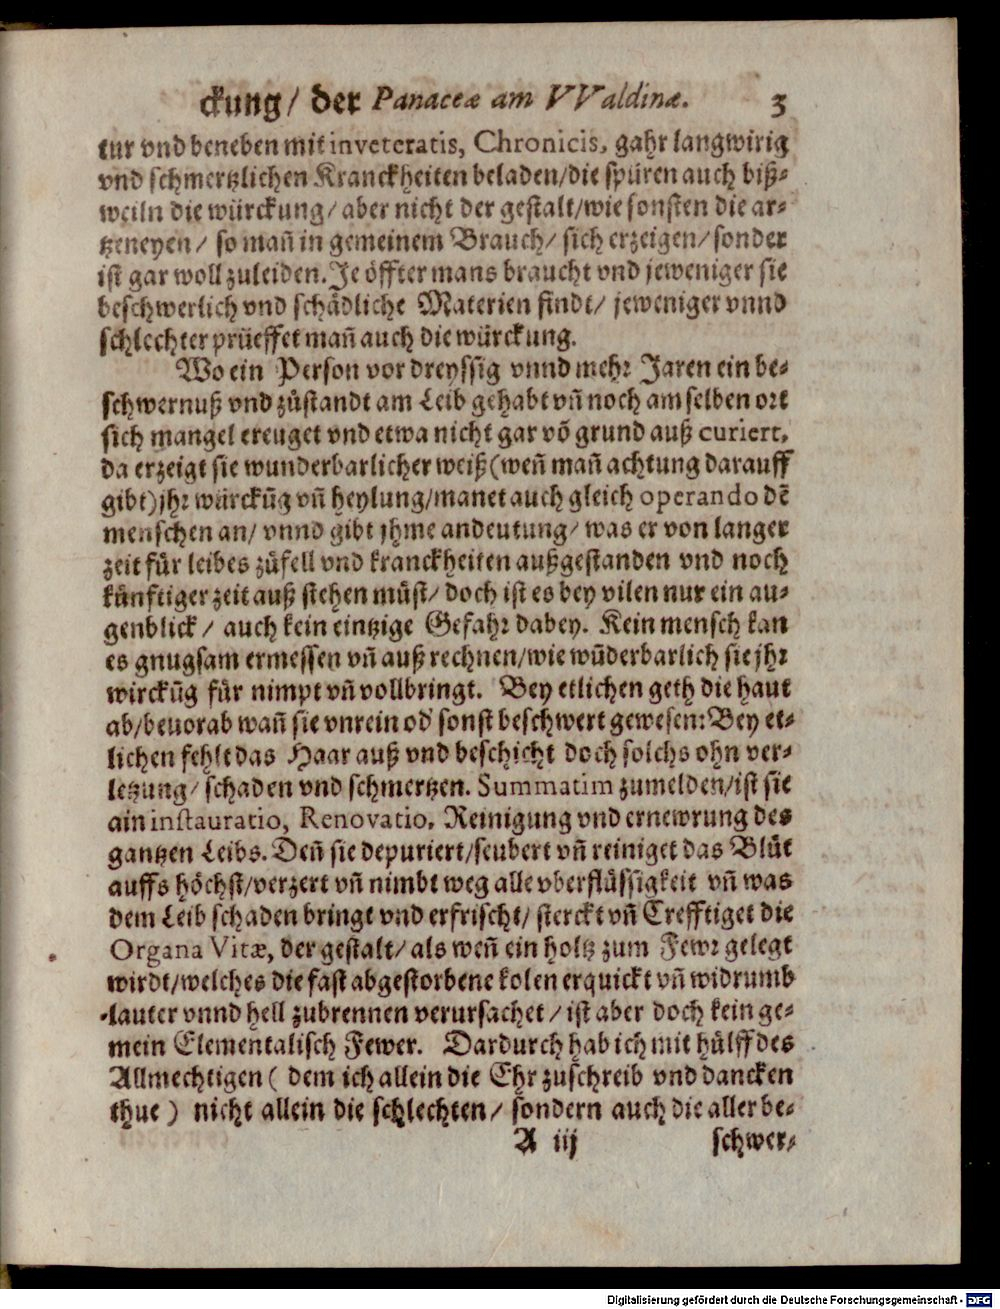 ckung/ der Panaceæ am VValdinæ. 3
tur vnd beneben mit inveteratis, Chronicis, gahr langwirig
vnd schmertzlichen Kranckheiten beladen/die spüren auch biß⸗
weiln die würckung/ aber nicht der gestalt/wie sonsten die ar⸗
tzeneyen/ so mañ in gemeinem Brauch/ sich erzeigen/ sonder
ist gar woll zuleiden. Je öffter mans braucht vnd jeweniger sie
beschwerlich vnd schädliche Materien findt/ jeweniger vnnd
schlechter prüeffet mañ auch die würckung.
Wo ein Person vor dreyssig vnnd mehr Jaren ein be⸗
schwernuß vnd zůstandt am Leib gehabt vñ noch am selben ort
sich mangel ereuget vnd etwa nicht gar võ grund auß curiert,
da erzeigt sie wunderbarlicher weiß (weñ mañ achtung darauff
gibt) jhr würckũg vñ heylung/manet auch gleich operando dẽ
menschen an/ vnnd gibt jhme andeutung/ was er von langer
zeit für leibes zůfell vnd kranckheiten außgestanden vnd noch
künftiger zeit auß stehen müst/ doch ist es bey vilen nur ein au⸗
genblick/ auch kein eintzige Gefahr dabey. Kein mensch kan
es gnugsam ermessen vñ auß rechnen/wie wũderbarlich sie jhr
wirckũg für nimpt vñ vollbringt. Bey etlichen geth die haut
ab/beuorab wañ sie vnrein od' sonst beschwert gewesen: Bey et⸗
lichen fehlt das Haar auß vnd beschicht doch solchs ohn ver⸗
letzung/ schaden vnd schmertzen. Summatim zumelden/ist sie
ain instauratio, Renovatio, Reinigung vnd ernewrung des
gantzen Leibs. Deñ sie depuriert/seubert vñ reiniget das Blůt
auffs höchst/verzert vñ nimbt weg alle vberflüssigkeit vñ was
dem Leib schaden bringt vnd erfrischt/ sterckt vñ Crefftiget die
Organa Vitæ, der gestalt/ als weñ ein holtz zum Fewr gelegt
wirdt/welches die fast abgestorbene kolen erquickt vñ widrumb
lauter vnnd hell zubrennen verursachet/ ist aber doch kein ge⸗
mein Elementalisch Fewer. Dardurch hab ich mit hülff des
Allmechtigen ( dem ich allein die Ehr zuschreib vnd dancken
thue ) nicht allein die schlechten/ sondern auch die aller be⸗
A iij schwer⸗
Digitalisierung gefördert durch die Deutsche Forschungsgemeinschaft - DFG